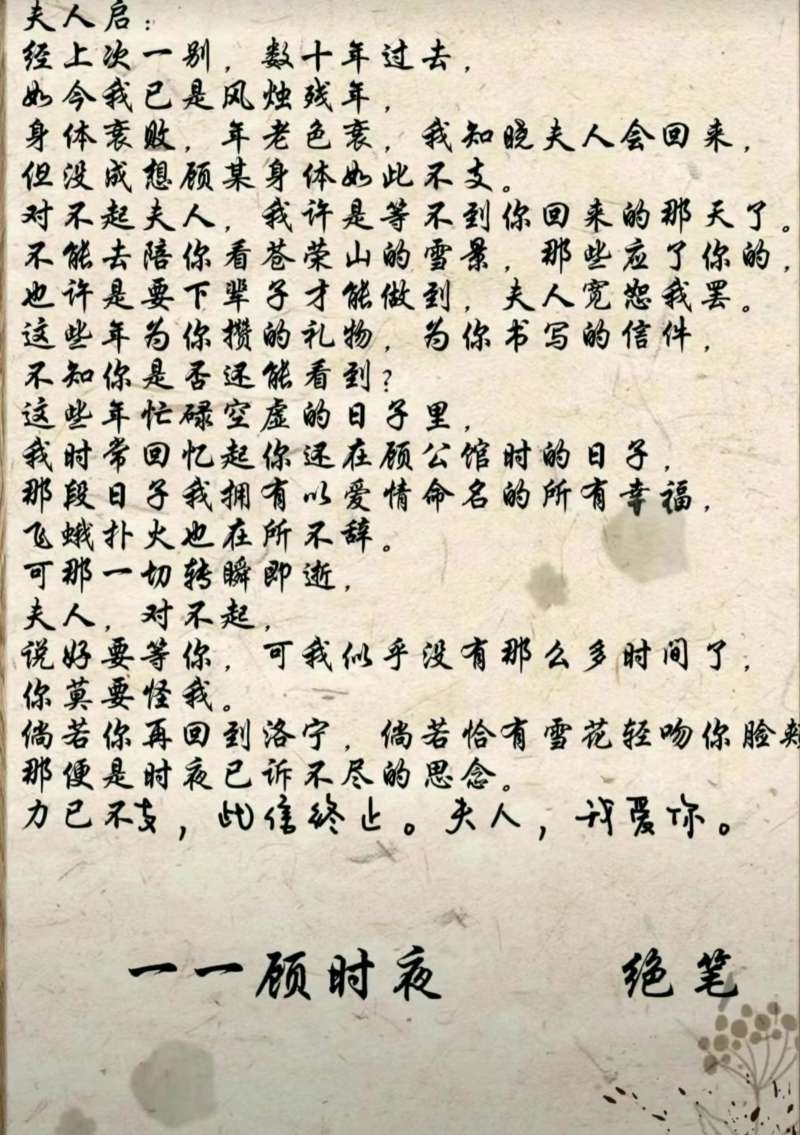 夫人启：
经上次一别，数十年过去，
如今我已是风烛残年，
身体衰败，年老色衰，我知晓夫人会回来，
但没成想顾某身体如此不支。
对不起夫人，我许是等不到你回来的那天了。
不能去陪你看苍荣山的雪景，那些应了你的，
也许是要下辈子才能做到，夫人宽恕我罢。
这些年为你攒的礼物，为你书写的信件，
不知你是否还能看到？
这些年忙碌空虚的日子里，
我时常回忆起你还在顾公馆时的日子，
那段日子我拥有以爱情命名的所有幸福，
飞蛾扑火也在所不辞。
可那一切转瞬即逝，
夫人，对不起，
说好要等你，可我似乎没有那么多时间了，
你莫要怪我。
倘若你再回到洛宁，倘若恰有雪花轻吻你脸颊
那便是时夜已诉不尽的思念。
力已不支，此信终止。夫人，我爱你。
一一顾时夜 绝笔